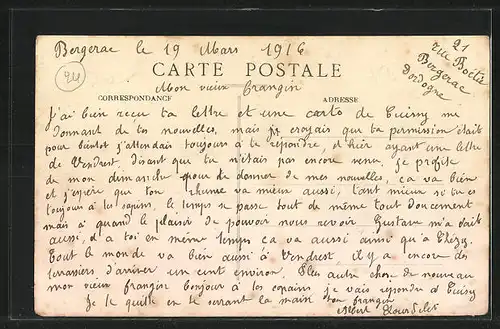 Bergerac le 19 Mars 1916
21
rue Boëtie
Bergerac
Dordogne
24
CARTE POSTALE
Mon vieux frangin
CORRESPONDANCE
ADRESSE
J'ai bien reçu ta lettre et une carte de Cuisy me
donnant de tes nouvelles, mais je croyais que ta permission était
pour bientôt j'attendais toujours à te répondre, et hier ayant une lettre
de Vendrest, disant que tu n'étais pas encore venu. Je profite
de mon dimanche pour te donner de mes nouvelles, ça va bien
et j'espère que ton rhume va mieux aussi, tant mieux si tu es
toujours à les copains, le temps se passe tout de même tout doucement
mais à quand le plaisir de pouvoir nous revoir. Gustave m'a écrit
aussi, d'a toi en même temps ça va aussi ainsi qu'a
Tout le monde va bien aussi à Vendrest, il y a encore des
terrassiers, d'arriver un cent environ. Plus autre chose de nouveau
mon vieux frangin bonjour à les copains je vais répondre à Cuisy
Je te quitte en te serrant la main ton frangin
Albert